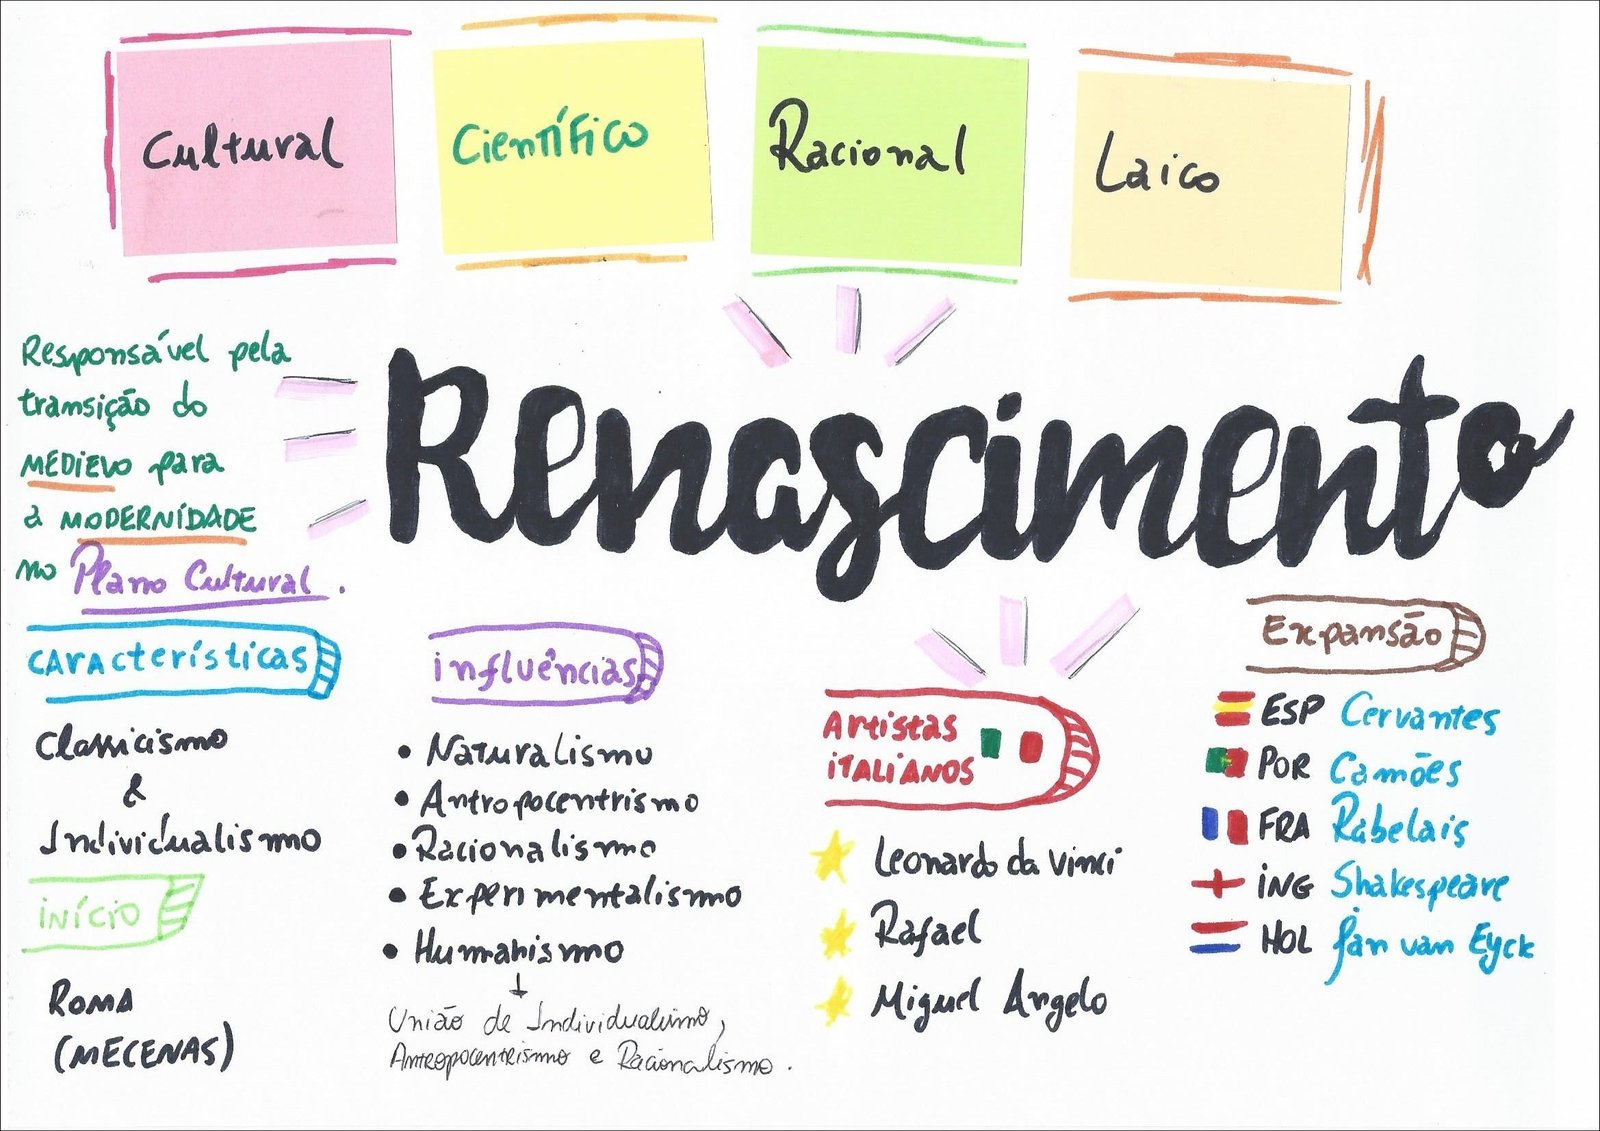 Cultural
Científico
Racional
Laico
Responsável pela
transição do
MEDIEVO para
a MODERNIDADE
no Plano Cultural.
Renascimento
Características
Classicismo
&
Individualismo
início
ROMA
(MECENAS)
influências
• Naturalismo
• Antropocentrismo
• Racionalismo
• Experimentalismo
• Humanismo
↓
União de Individualismo,
Antropocentrismo e Racionalismo.
Artistas
iTALiANOS
Leonardo da Vinci
Rafael
Miguel Angelo
Expansão
ESP Cervantes
POR Camões
FRA Rabelais
iNG Shakespeare
HOL Jan van Eyck